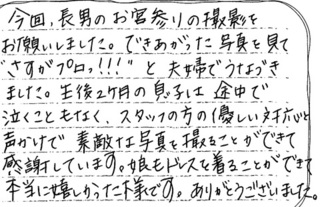 今回、長男のお宮参りの撮影を
お願いしました。できあがった写真を見て
"さすがプロっ!!!"と夫婦でうなづき
ました。生後2ヶ月の息子は途中で
泣くこともなく、スタッフの方の優しい対応と
声かけで素敵な写真を撮ることができて
感謝しています。娘もドレスを着ることができて
本当に嬉しかった様です。ありがとうございました。